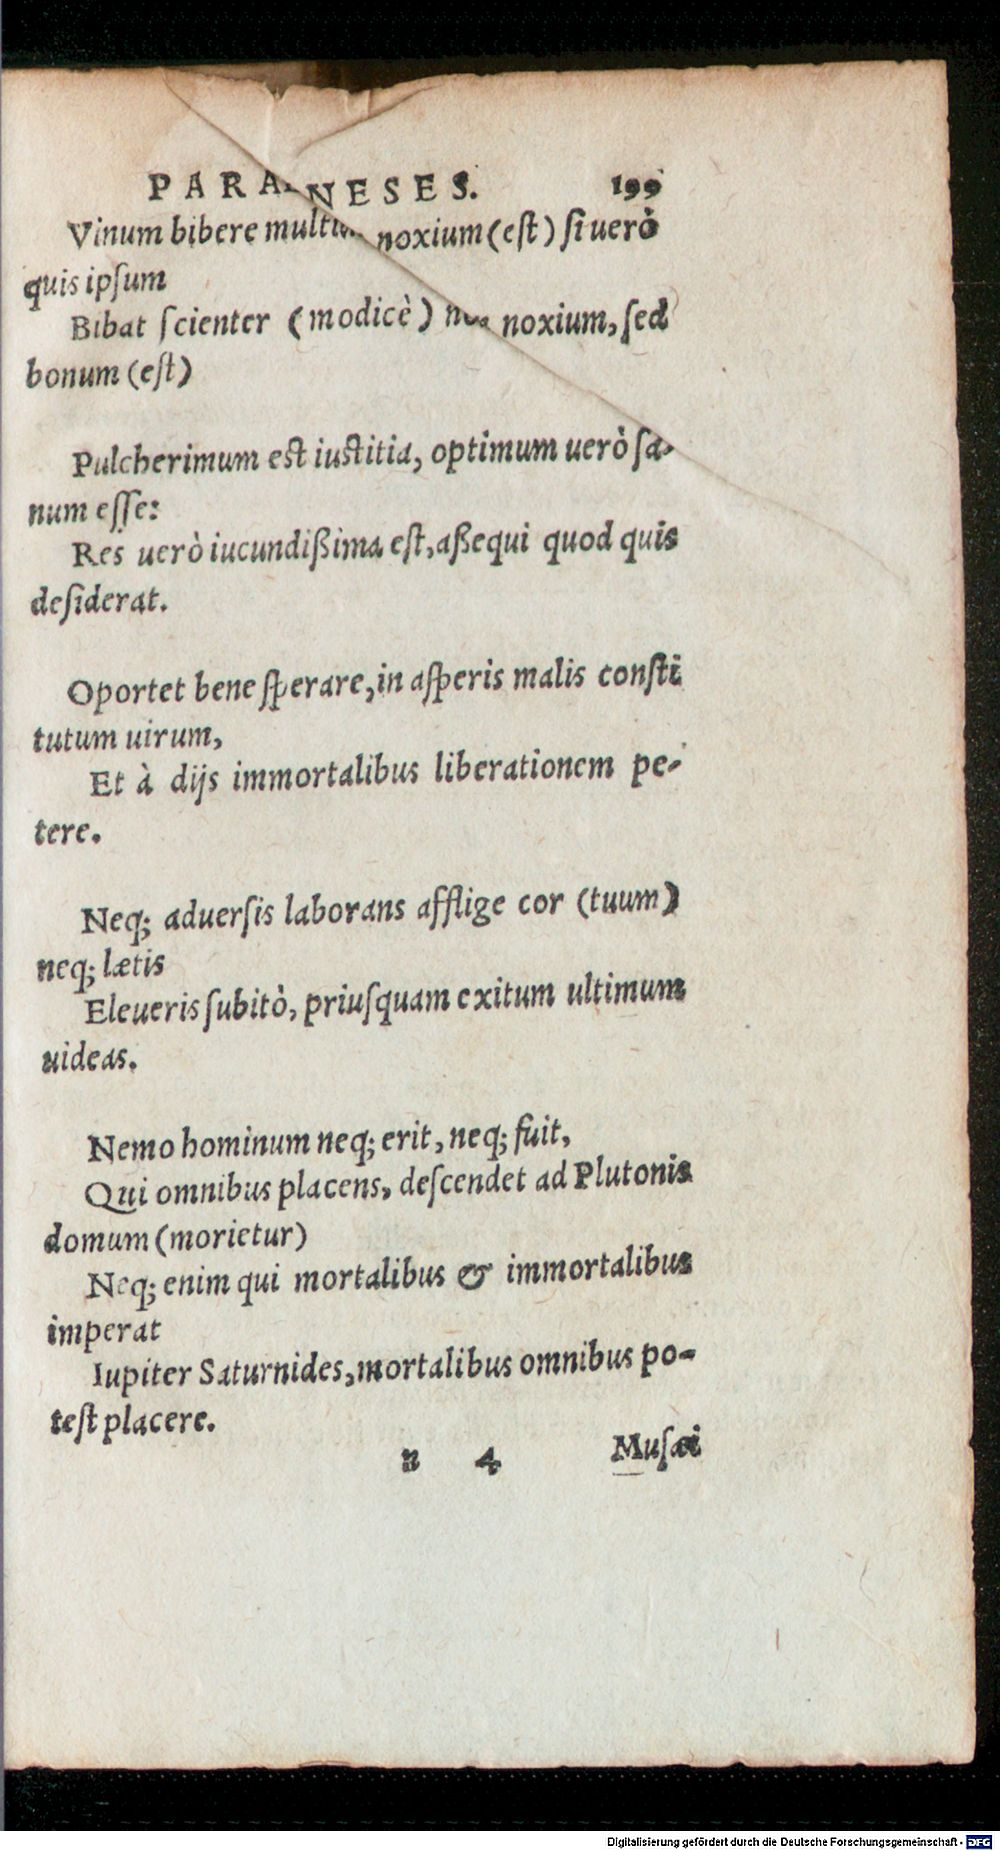 PARAENESES. 199
Vinum bibere multum noxium (est) si uerò
quis ipsum
Bibat scienter (modicè) non noxium, sed
bonum (est)
Pulcherimum est iustitia, optimum uerò sa-
num esse:
Res uerò iucundißima est, aßequi quod quis
desiderat.
Oportet bene sperare, in asperis malis consti
tutum uirum,
Et à dijs immortalibus liberationem pe-
tere.
Neq; aduersis laborans afflige cor (tuum)
neq; lætis
Eleueris subitò, priusquam exitum ultimum
uideas.
Nemo hominum neq; erit, neq; fuit,
Qui omnibus placens, descendet ad Plutonis
domum (morietur)
Neq; enim qui mortalibus & immortalibus
imperat
Iupiter Saturnides, mortalibus omnibus po-
test placere.
n 4 Musæi
Digitalisierung gefördert durch die Deutsche Forschungsgemeinschaft - DFG